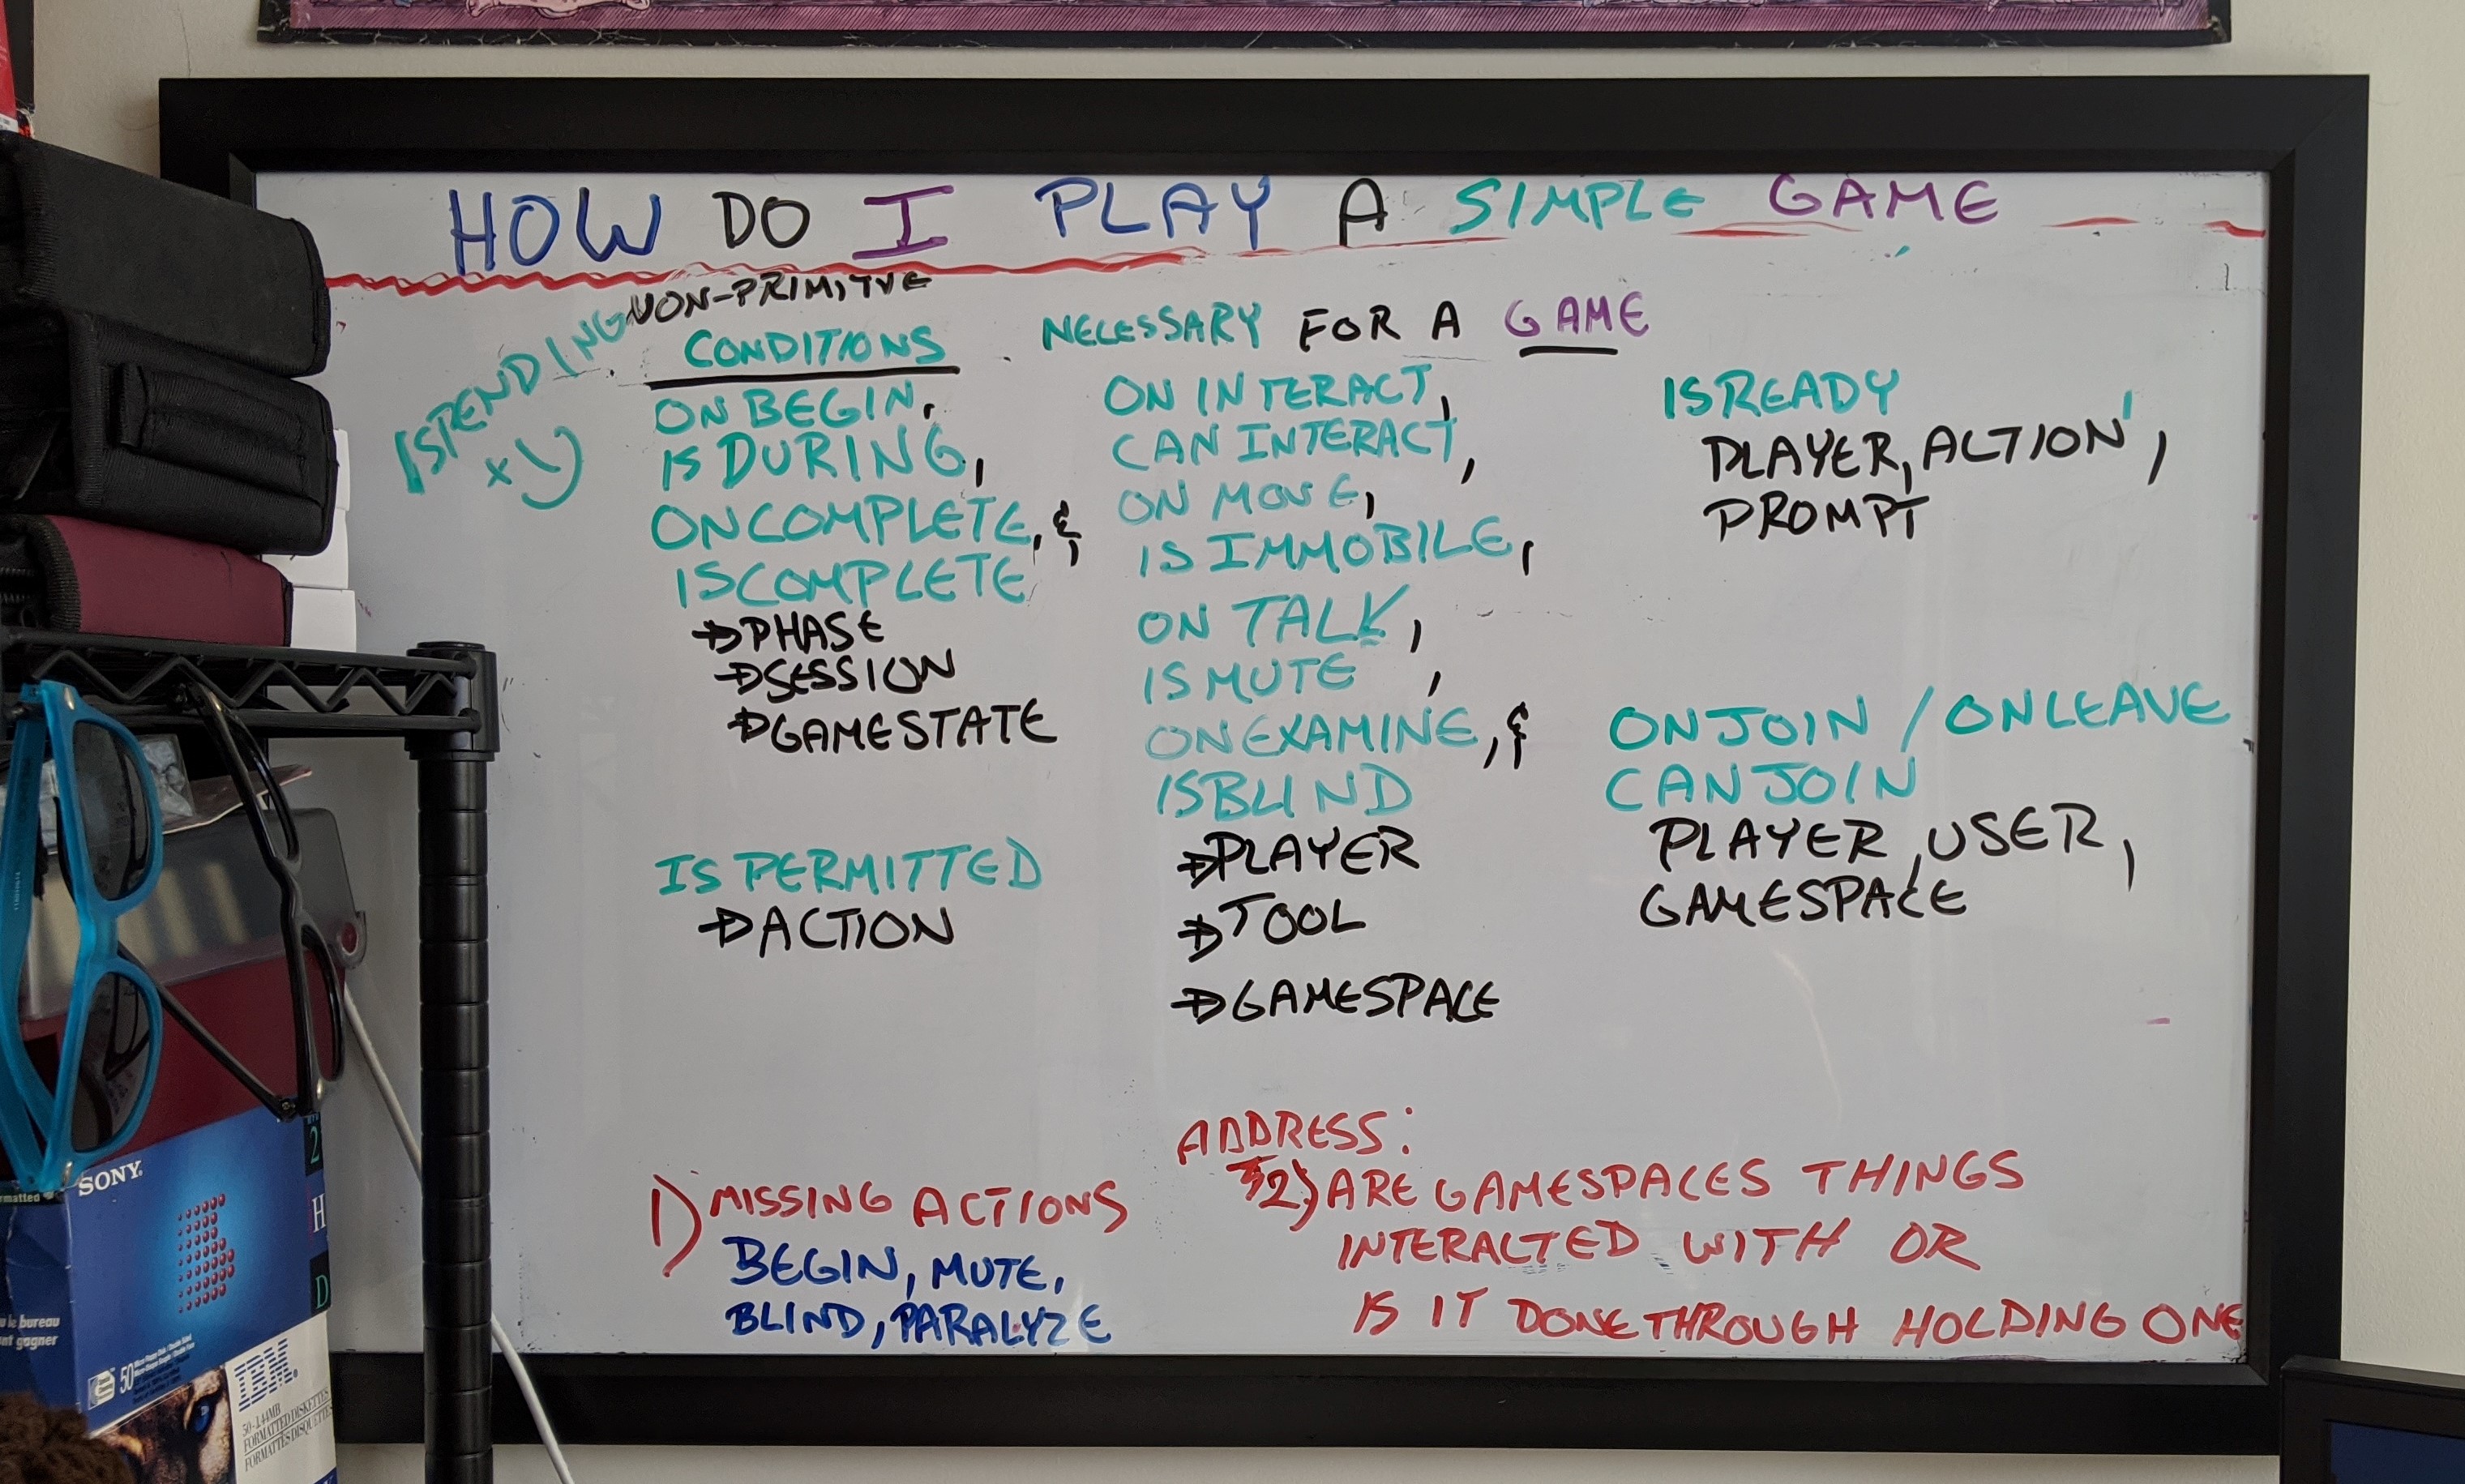 HOW DO I PLAY A SIMPLE GAME
NON-PRIMITVE
CONDITIONS NECESSARY FOR A GAME
ISPENDING
ONBEGIN,
IS DURING,
ONCOMPLETE, &
ISCOMPLETE
PHASE
SESSION
GAMESTATE
IS PERMITTED
ACTION
ON INTERACT,
CAN INTERACT,
ON MOVE,
IS IMMOBILE,
ON TALK,
IS MUTE,
ON EXAMINE, &
ISBLIND
PLAYER
TOOL
GAMESPACE
ISREADY
PLAYER, ACTION,
PROMPT
ONJOIN / ONLEAVE
CANJOIN
PLAYER, USER,
GAMESPACE
1) MISSING ACTIONS
BEGIN, MUTE,
BLIND, PARALYZE
ADDRESS:
2) ARE GAMESPACES THINGS
INTERACTED WITH OR
IS IT DONE THROUGH HOLDING ONE
SONY
2
H
D
50
IBM
50-1.44MB
FORMATTED DISKETTES
FORMATTÉS DISQUETTES